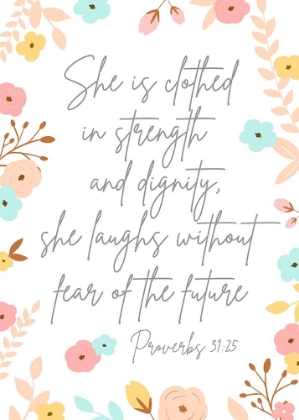 She is clothed
in strength
and dignity,
she laughs without
fear of the future
Proverbs 31:25